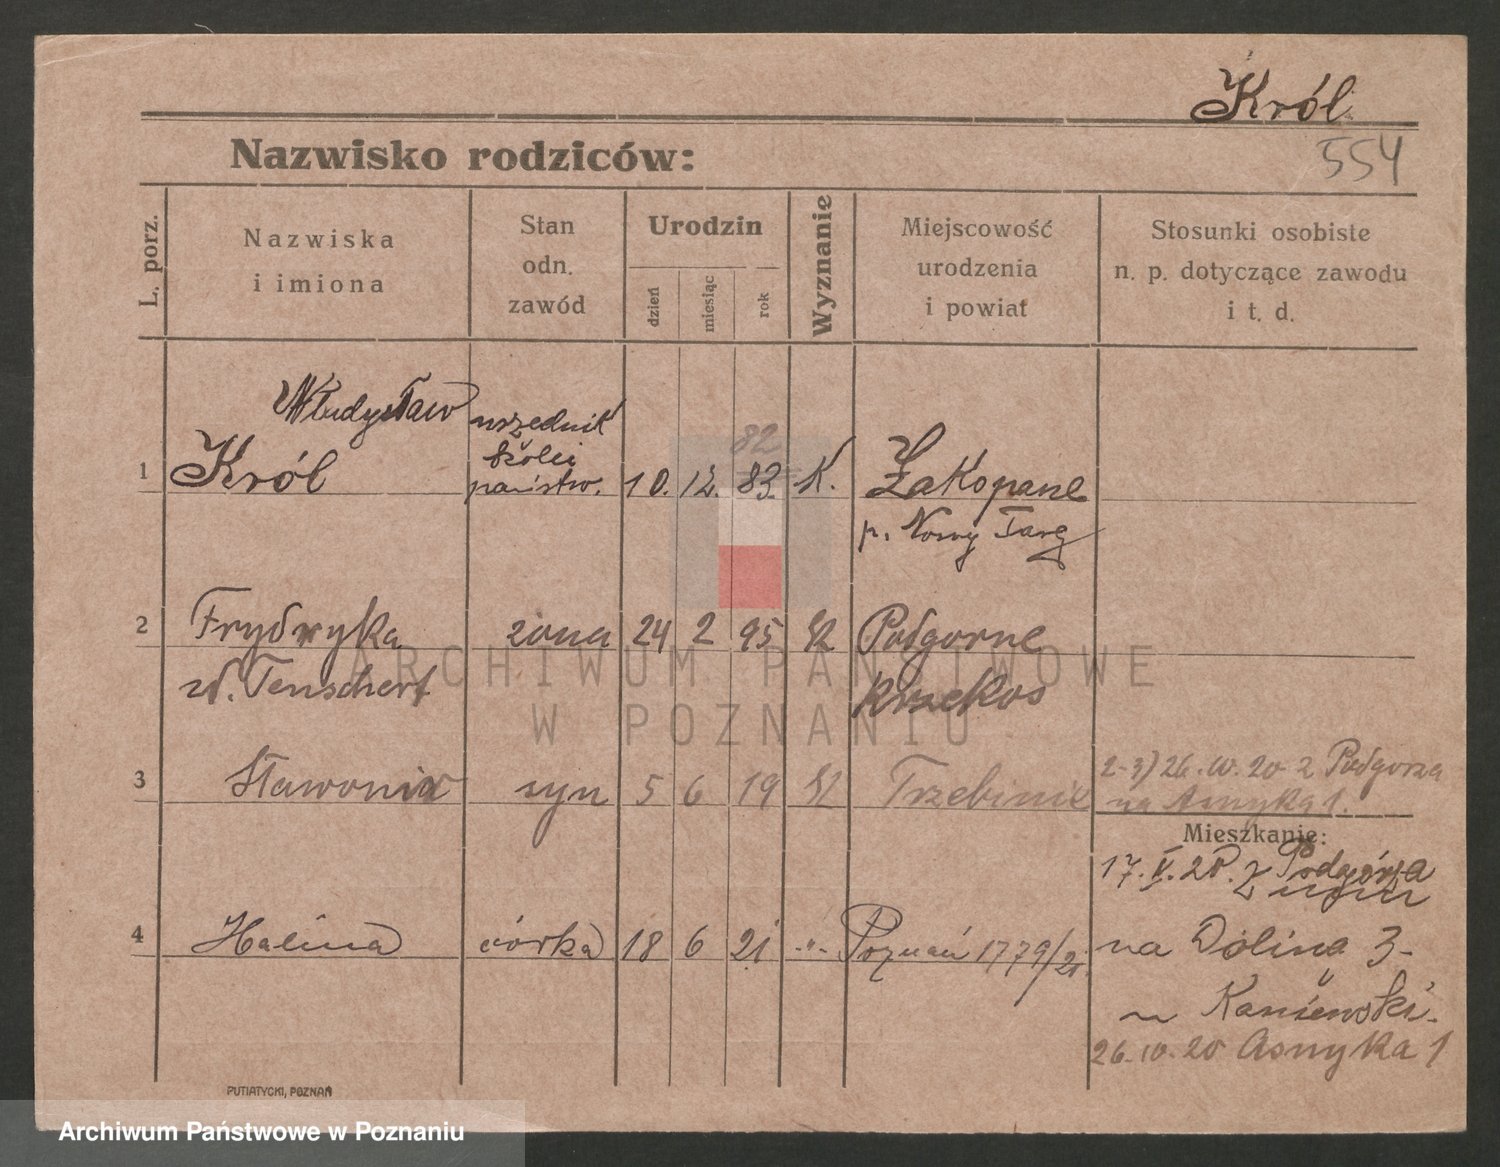 Król
554
Nazwisko rodziców:
L. porz.
Nazwiska
i imiona
Stan
odn.
zawód
Urodzin
dzień
miesiąc
rok
Wyznanie
Miejscowość
urodzenia
i powiat
Stosunki osobiste
n. p. dotyczące zawodu
i t. d.
Władysław
1 Król urzędnik kolei państw. 10. 12. 83 82 K. Zakopane
p. Nowy Targ
2 Frydryka żona 24 2 95 Podgorne
Tenschert
3 Sławomir syn 5 6 19 Trzebinia
2-3) 26. 10. 20 z Podgorza
na Asnyka 1.
Mieszkanie:
17. 20. z Podgórza
4 Halina córka 18 6 21 -"- Poznań 1779/21
na Dolina 3-
u Kaniewski.
26. 10. 20 Asnyka 1
PUTIATYCKI, POZNAŃ
ARCHIWUM PAŃSTWOWE
W POZNANIU
Archiwum Państwowe w Poznaniu